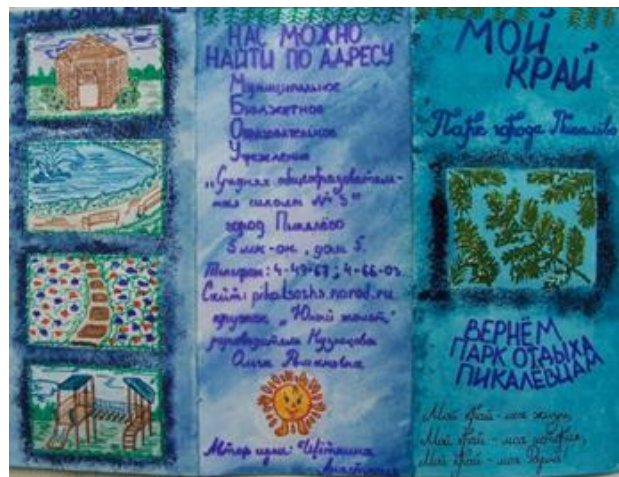 НАМ ОЧЕНЬ
НАС МОЖНО
НАЙТИ ПО АДРЕСУ
Муниципальное
Бюджетное
Образовательное
Учреждение
„Средняя общеобразователь-
ная школа №3"
город Пикалёво
5 мк-он, дом 5.
Телефон: 4-49-67; 4-66-03.
Сайт: narod.ru
кружок „Юный
руководитель Кузнецова
Ольга
Автор идеи:
Анастасия
МОЙ
КРАЙ
Парк города Пикалёво
ВЕРНЁМ
ПАРК ОТДЫХА
ПИКАЛЁВЦАМ
Мой край - моя жизнь,
Мой край - моя история,
Мой край - моя Родина!